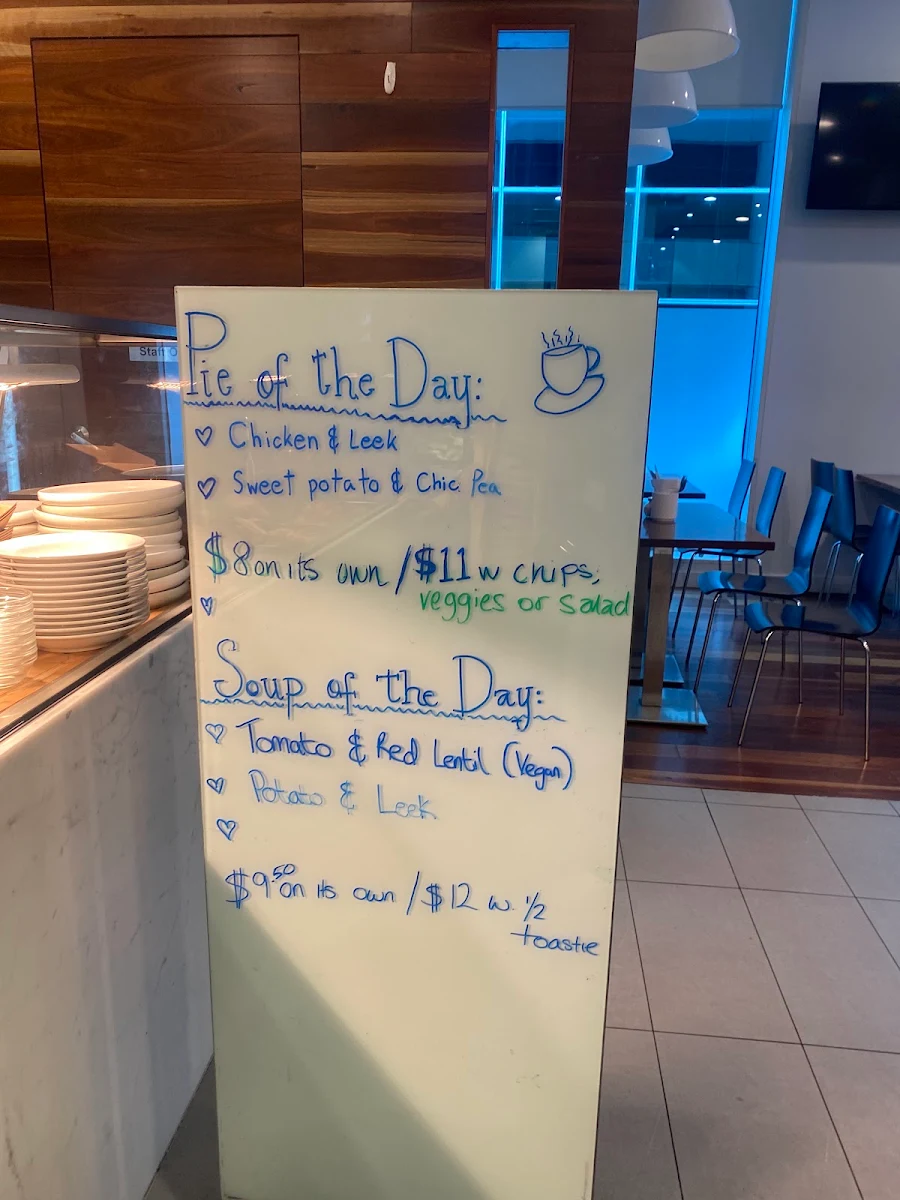 Staff O
Pie of the Day:
Chicken & Leek
Sweet potato & Chic Pea
$8 on its own / $11 w chips,
veggies or salad
Soup of the Day:
Tomato & Red Lentil (Vegan)
Potato & Leek
$9.50 on its own / $12 w. 1/2
toastie